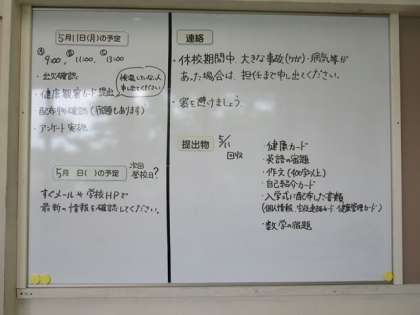 5月11日(月)の予定
Ⓐ Ⓑ Ⓒ
9:00、11:00、13:00
・出欠確認
・健康観察カード提出
検温していない人
申し出てください
配布物確認(宿題もあります)
・アンケート実施
5月 日( )の予定
次回
登校日?
すぐメールや学校HPで
最新の情報を確認してください。
連絡
・休校期間中 大きな事故(ケガ)・病気等が
あった場合は、担任まで申し出てください。
・密を避けましょう
提出物
5/11
回収
・健康カード
・英語の宿題
・作文(400字以上)
・自己紹介カード
・入学式に配布した書類
(個人情報、健康管理カード)
・数学の宿題